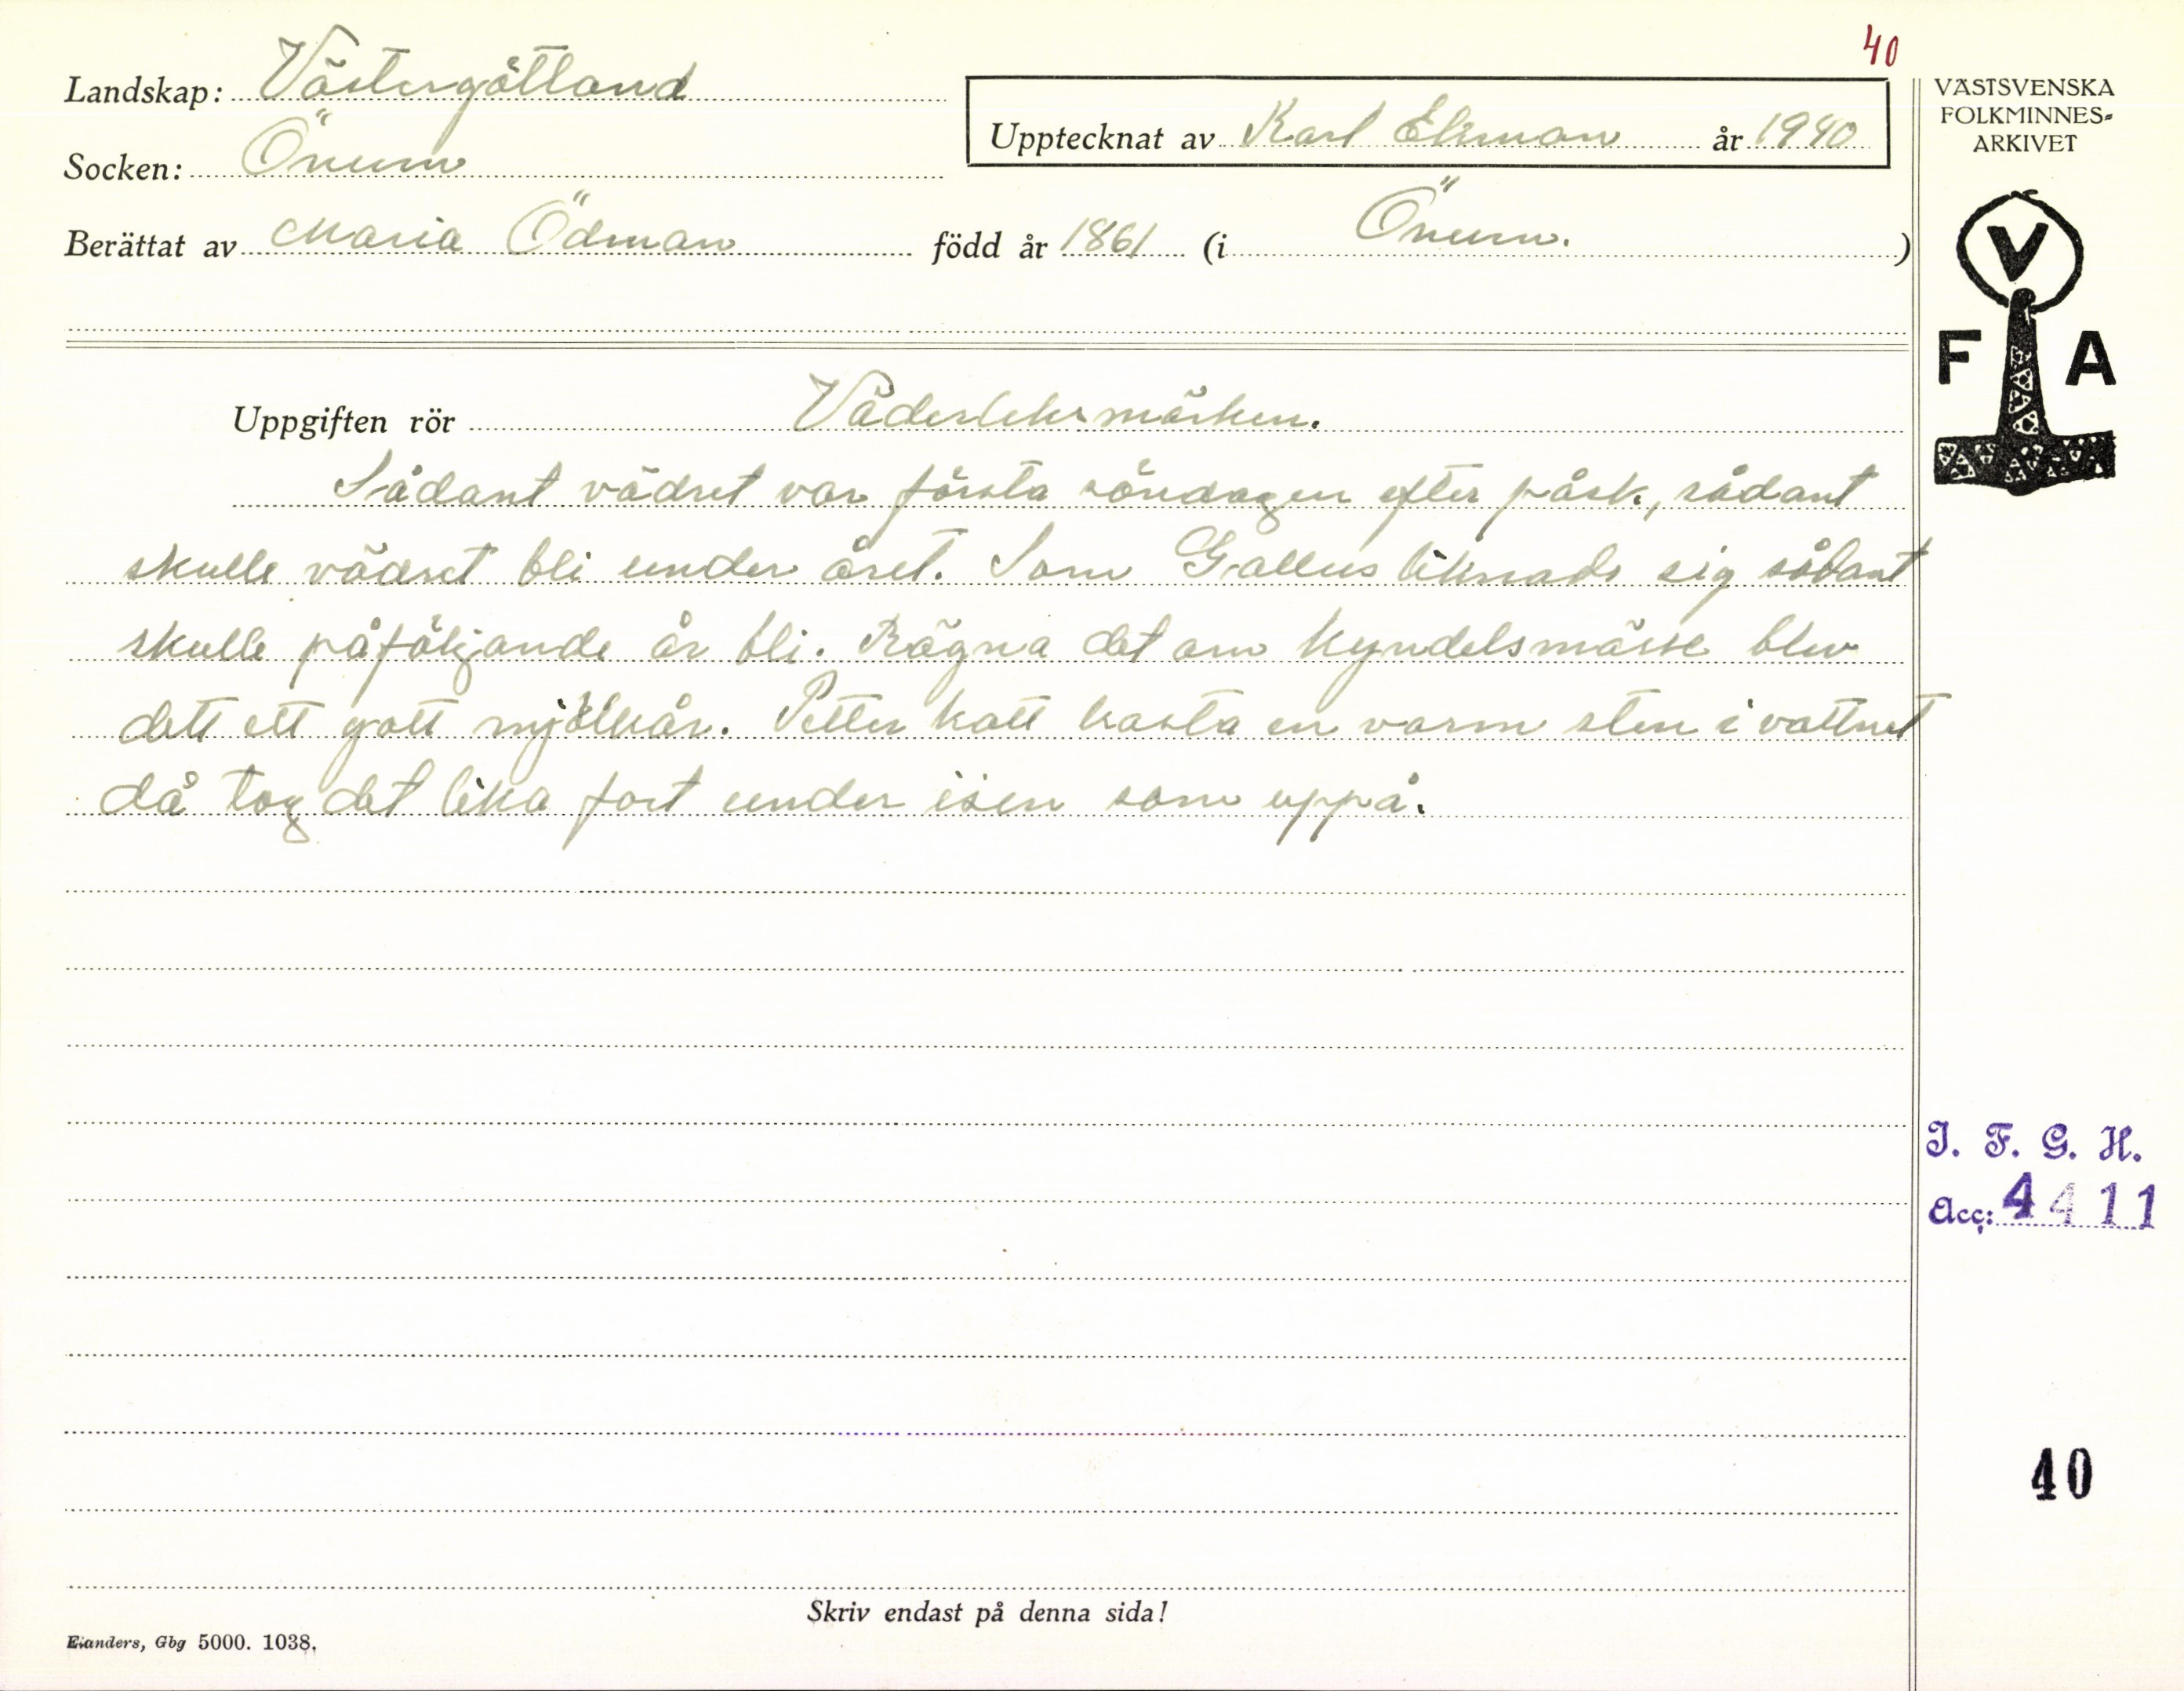 40
Landskap: Västergötland
Upptecknat av Karl Ekman år 1940
VÄSTSVENSKA
FOLKMINNES-
ARKIVET
Socken: Önum
Berättat av Maria Ödman född år 1861 (i Önum.)
V
F A
Uppgiften rör Väderleksmärken.
Sådant vädret var första söndagen efter påsk, sådant
skulle vädret bli under året. Som Gallus liknade sig sådant
skulle påföljande år bli. Rägna det om kyndelsmässe blev
dett ett gott mjölkår. Petter katt kasta en varm sten i vattnet
då tog det lika fort under isen som uppå.
I. F. G. H.
Acc: 4411
40
Skriv endast på denna sida!
Elanders, Gbg 5000. 1038.